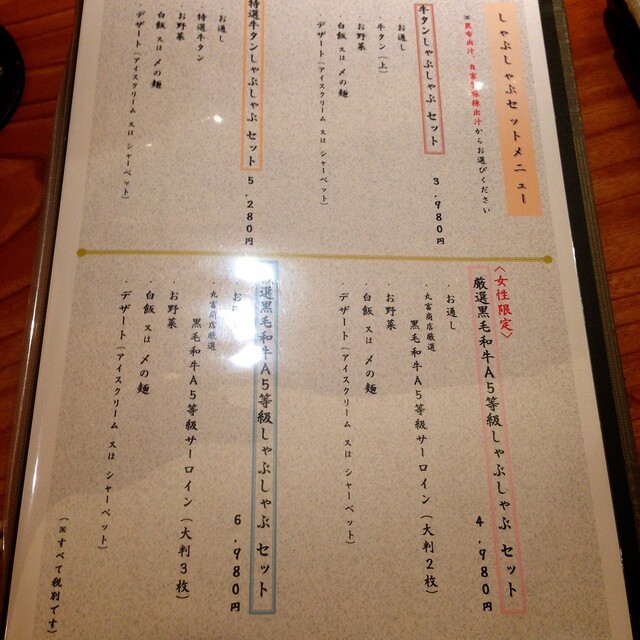 しゃぶしゃぶセットメニュー
※昆布出汁、自家製麻辣出汁からお選びください
牛タンしゃぶしゃぶ セット
3,980円
・お通し
・牛タン（上）
・お野菜
・白飯 又は 〆の麺
・デザート（アイスクリーム 又は シャーベット）
特選牛タンしゃぶしゃぶ セット
5,280円
・お通し
・特選牛タン
・お野菜
・白飯 又は 〆の麺
・デザート（アイスクリーム 又は シャーベット）
〈女性限定〉
厳選黒毛和牛A5等級しゃぶしゃぶ セット
4,980円
・お通し
・丸富商店厳選
黒毛和牛A5等級サーロイン（大判2枚）
・お野菜
・白飯 又は 〆の麺
・デザート（アイスクリーム 又は シャーベット）
選黒毛和牛A5等級しゃぶしゃぶ セット
6,980円
・お
・丸富商店厳選
黒毛和牛A5等級サーロイン（大判3枚）
・お野菜
・白飯 又は 〆の麺
・デザート（アイスクリーム 又は シャーベット）
（※すべて税別です）